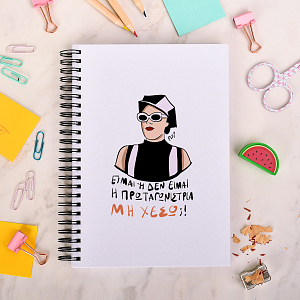 ΕΙΜΑΙ Ή ΔΕΝ ΕΙΜΑΙ
Η ΠΡΩΤΑΓΩΝΙΣΤΡΙΑ
ΜΗ ΧΕΣΩ;!